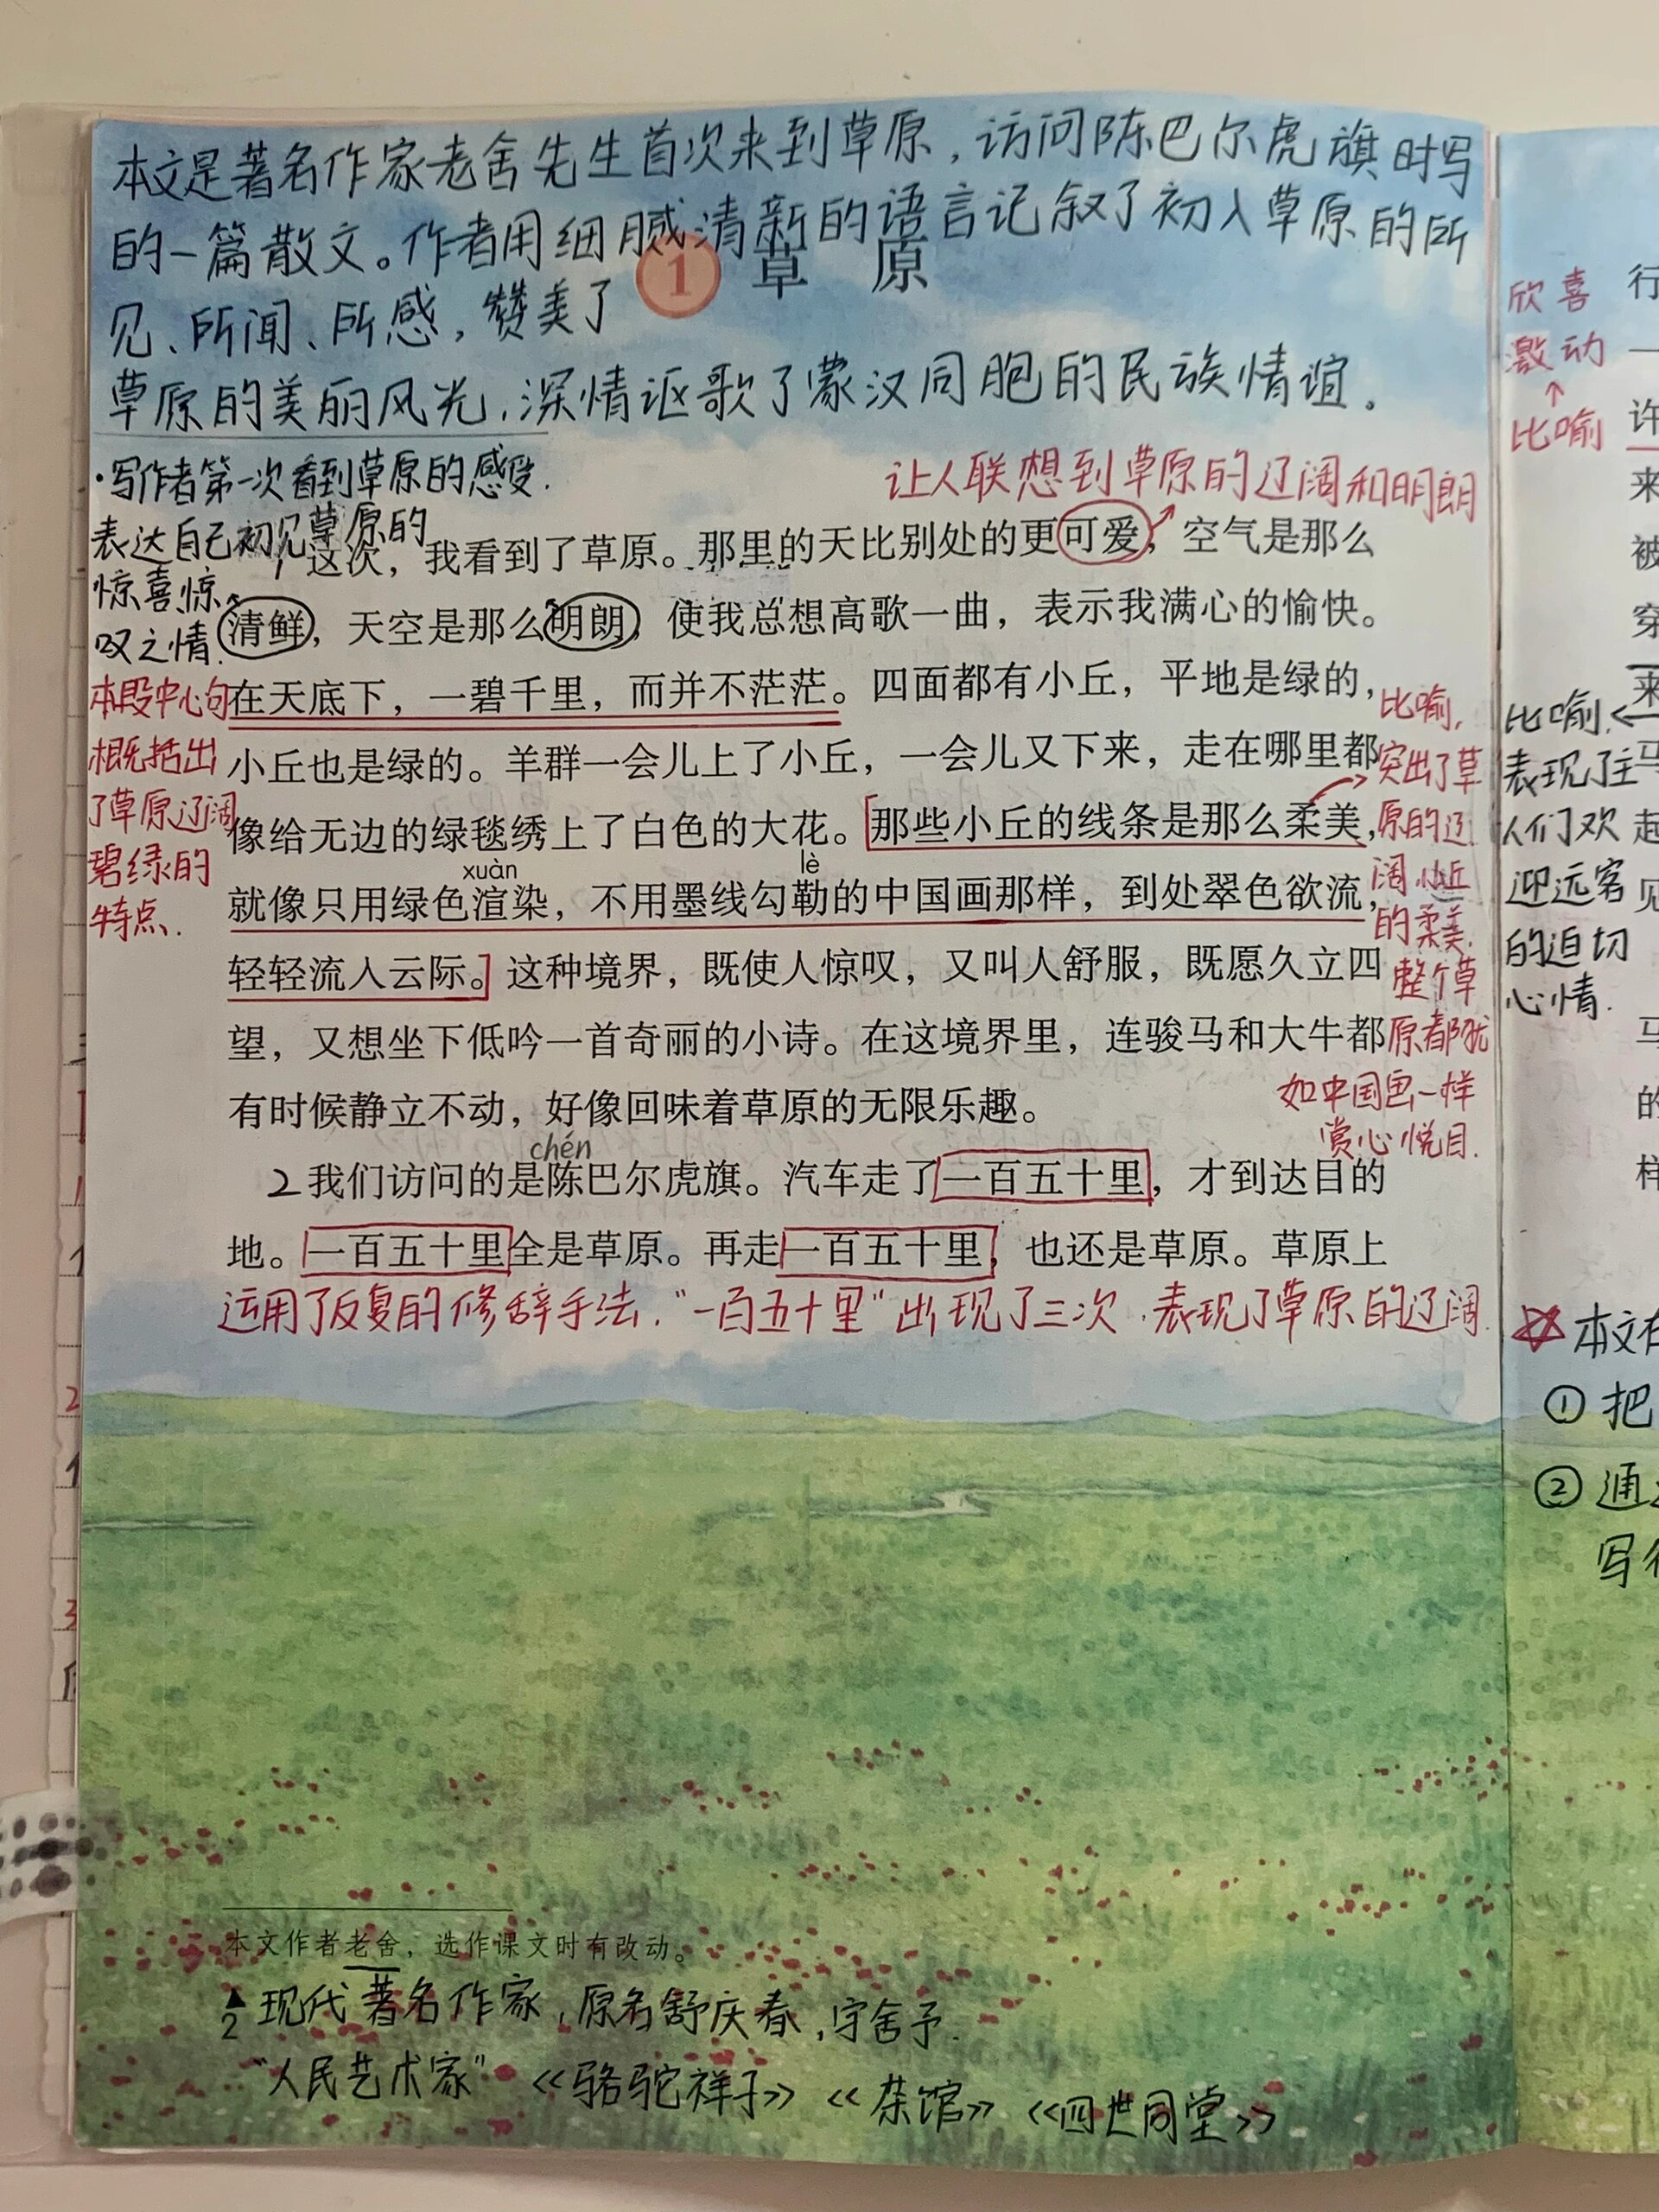 本文是著名作家老舍先生首次来到草原，访问陈巴尔虎旗时写
的一篇散文。作者用细腻清新的语言记叙了初入草原的所
见、所闻、所感，赞美了
1 草原
草原的美丽风光，深情讴歌了蒙汉同胞的民族情谊。
·写作者第一次看到草原的感受.
表达自己初见草原的
惊喜惊
叹之情.
让人联想到草原的辽阔和明朗
1 这次，我看到了草原。那里的天比别处的更可爱，空气是那么
清鲜，天空是那么明朗，使我总想高歌一曲，表示我满心的愉快。
在天底下，一碧千里，而并不茫茫。四面都有小丘，平地是绿的，
小丘也是绿的。羊群一会儿上了小丘，一会儿又下来，走在哪里都
像给无边的绿毯绣上了白色的大花。那些小丘的线条是那么柔美，
xuàn lè
就像只用绿色渲染，不用墨线勾勒的中国画那样，到处翠色欲流，
轻轻流入云际。这种境界，既使人惊叹，又叫人舒服，既愿久立四
望，又想坐下低吟一首奇丽的小诗。在这境界里，连骏马和大牛都
有时候静立不动，好像回味着草原的无限乐趣。
本段中心句
概括出
了草原辽阔
碧绿的
特点.
比喻,
突出了草
原的辽
阔,小丘
的柔美.
整个草
原都犹
如中国画一样
赏心悦目.
chén
2 我们访问的是陈巴尔虎旗。汽车走了一百五十里，才到达目的
地。一百五十里全是草原。再走一百五十里，也还是草原。草原上
运用了反复的修辞手法.“一百五十里”出现了三次,表现了草原的辽阔.
本文作者老舍，选作课文时有改动。
2 现代著名作家,原名舒庆春,字舍予.
“人民艺术家” 《骆驼祥子》《茶馆》《四世同堂》
欣喜
激动
↑
比喻
行
一
许
来
被
穿
来
马
起
见
马
的
样
比喻.←
表现了主
人们欢
迎远客
的迫切
心情.
☆本文在
① 把
② 通过
写